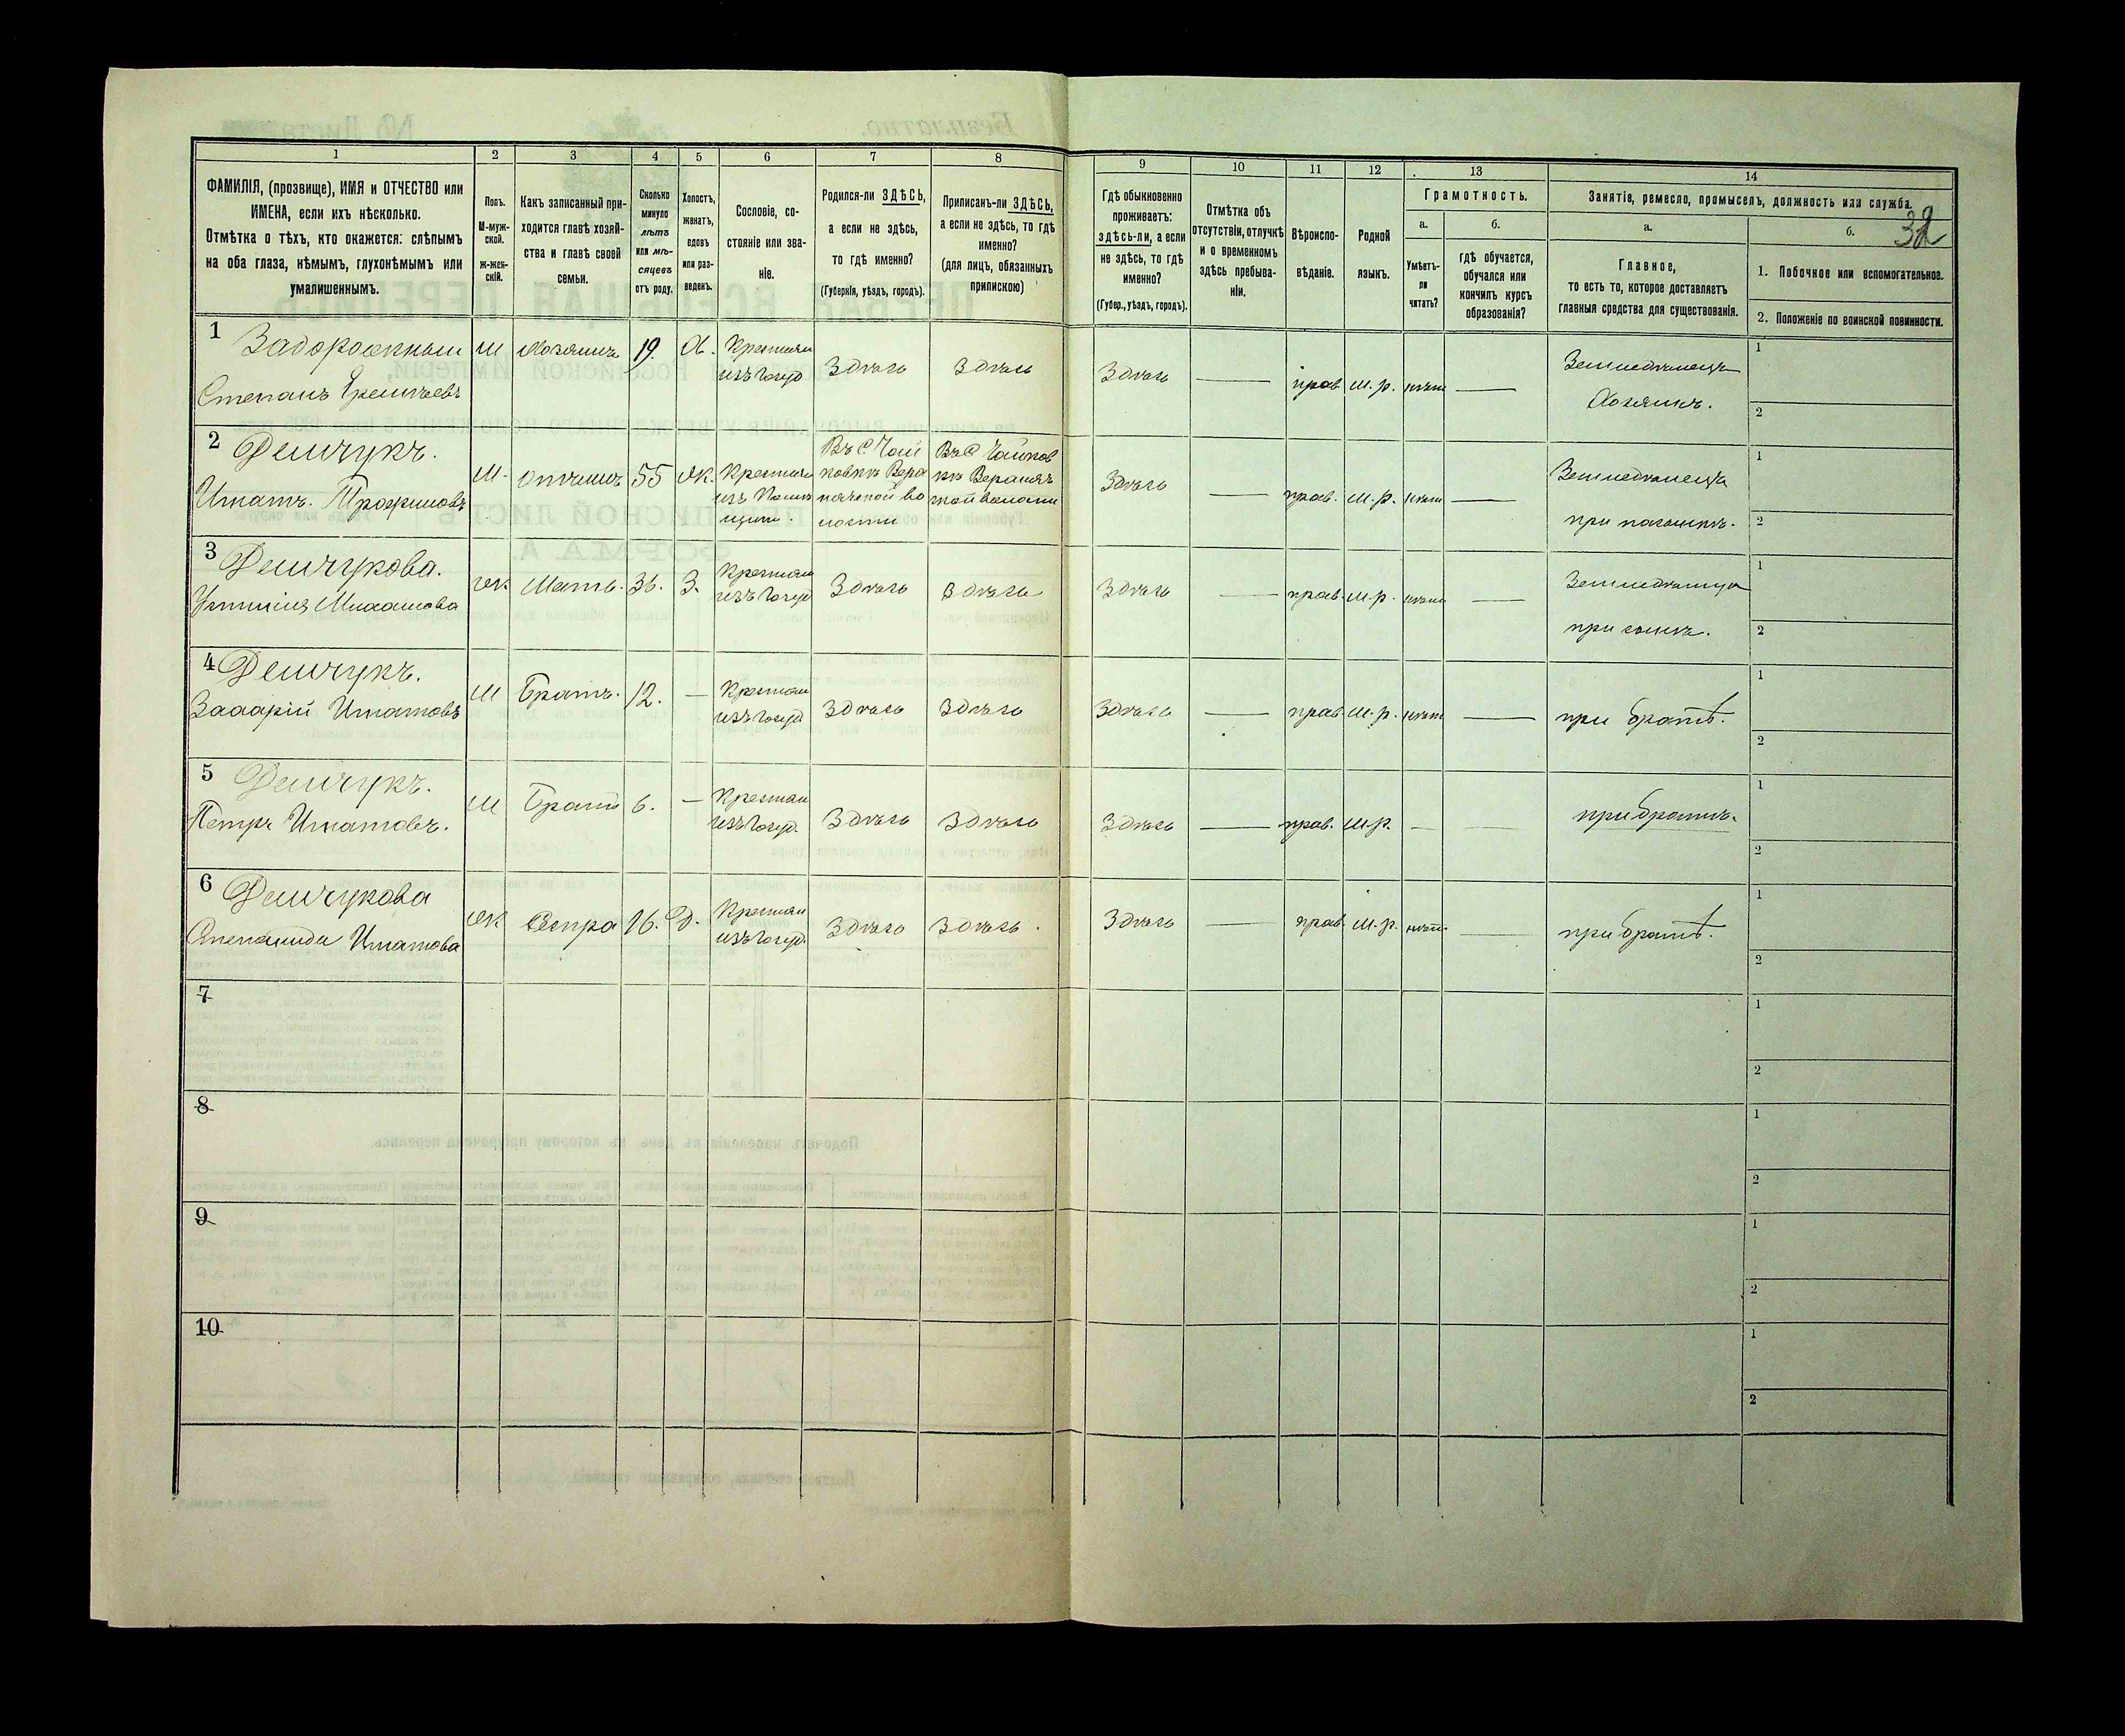 1 2 3 4 5 6 7 8 9 10 11 12 13 14
ФАМИЛІЯ, (прозвище), ИМЯ и ОТЧЕСТВО или
ИМЕНА, если ихъ нѣсколько.
Отмѣтка о тѣхъ, кто окажется: слѣпымъ
на оба глаза, нѣмымъ, глухонѣмымъ или
умалишеннымъ.
Полъ.
М-муж-
ской.
ж-жен-
скій.
Какъ записанный при-
ходится главѣ хозяй-
ства и главѣ своей
семьи.
Сколько
минуло
лѣтъ
или мѣ-
сяцевъ
отъ роду.
Холостъ,
женатъ,
вдовъ
или раз-
веденъ.
Сословіе, со-
стояніе или зва-
ніе.
Родился-ли ЗДѢСЬ,
а если не здѣсь,
то гдѣ именно?
(Губернія, уѣздъ, городъ).
Приписанъ-ли ЗДѢСЬ,
а если не здѣсь, то гдѣ
именно?
(для лицъ, обязанныхъ
припискою)
Гдѣ обыкновенно
проживаетъ:
здѣсь-ли, а если
не здѣсь, то гдѣ
именно?
(Губер., уѣздъ, городъ).
Отмѣтка объ
отсутствіи, отлучкѣ
и о временномъ
здѣсь пребыва-
ніи.
Вѣроиспо-
вѣданіе.
Родной
языкъ.
Грамотность.
а.
Умѣетъ-
ли
читать?
б.
гдѣ обучается,
обучался или
кончилъ курсъ
образованія?
Занятіе, ремесло, промыселъ, должность или служба.
32
а.
Главное,
то есть то, которое доставляетъ
главныя средства для существованія.
б.
1. Побочное или вспомогательное.
2. Положеніе по воинской повинности.
1 Задорожный М Хозяинъ 19. Х. Крестьян
изъ Госуд Здѣсь Здѣсь Здѣсь — прав м. р. нѣт — Земледѣлецъ 1
Степанъ Хозяинъ. 2
2 Демчукъ. Въ С Чай Въ С Чайков
М. отчимъ 55 Ж. Крестьян ковкѣ Здѣсь — прав. м. р. нѣт — Земледѣлецъ 1
Игнатъ. Трофимовъ изъ при пасынкѣ. 2
3 Демчукова. ж Мать. 36. З. Крестьян
изъ Госуд Здѣсь Здѣсь Здѣсь — прав. м. р. нѣт — 1
при сынѣ. 2
4 Демчукъ. М Братъ. 12. — Крестьян 1
Захарій Игнатовъ изъ Госуд Здѣсь Здѣсь Здѣсь — прав. м. р. нѣт — при братѣ. 2
5 Демчукъ. М Брат 6. — Крестьян 1
Петръ Игнатовъ. изъ Госуд. Здѣсь Здѣсь Здѣсь — прав. м. р. — — при братѣ. 2
6 Демчукова ж Сестра 16. Д. Крестьян 1
Степанида Игнатова изъ Госуд. Здѣсь Здѣсь. Здѣсь — прав. м. р. нѣт. — при братѣ. 2
7 1
2
8 1
2
9 1
2
10 1
2